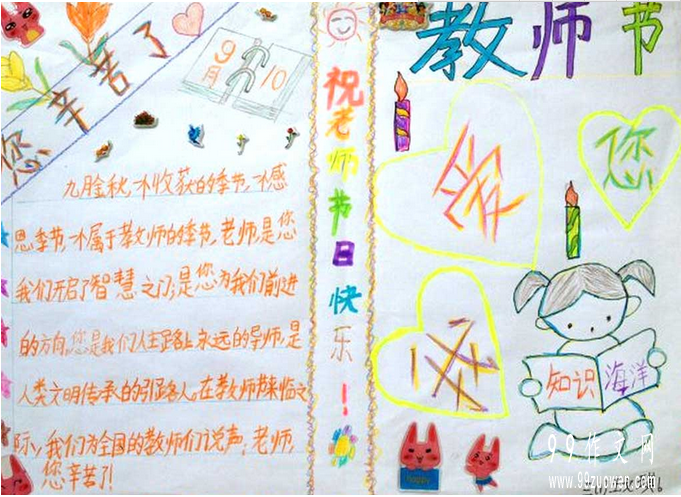 您辛苦了
9月
10
九月金秋,一个收获的季节,一个感
恩季节,一个属于教师的季节。老师,是您
我们开启了智慧之门;是您为我们前进
的方向,您是我们人生路上永远的导师,是
人类文明传承的引路人。在教师节来临之
际,我们为全国的教师们说声:老师,
您辛苦了!
祝老师节日快乐!
教师节
您
知识 海洋
happy
99作文网
www.99zuowen.com